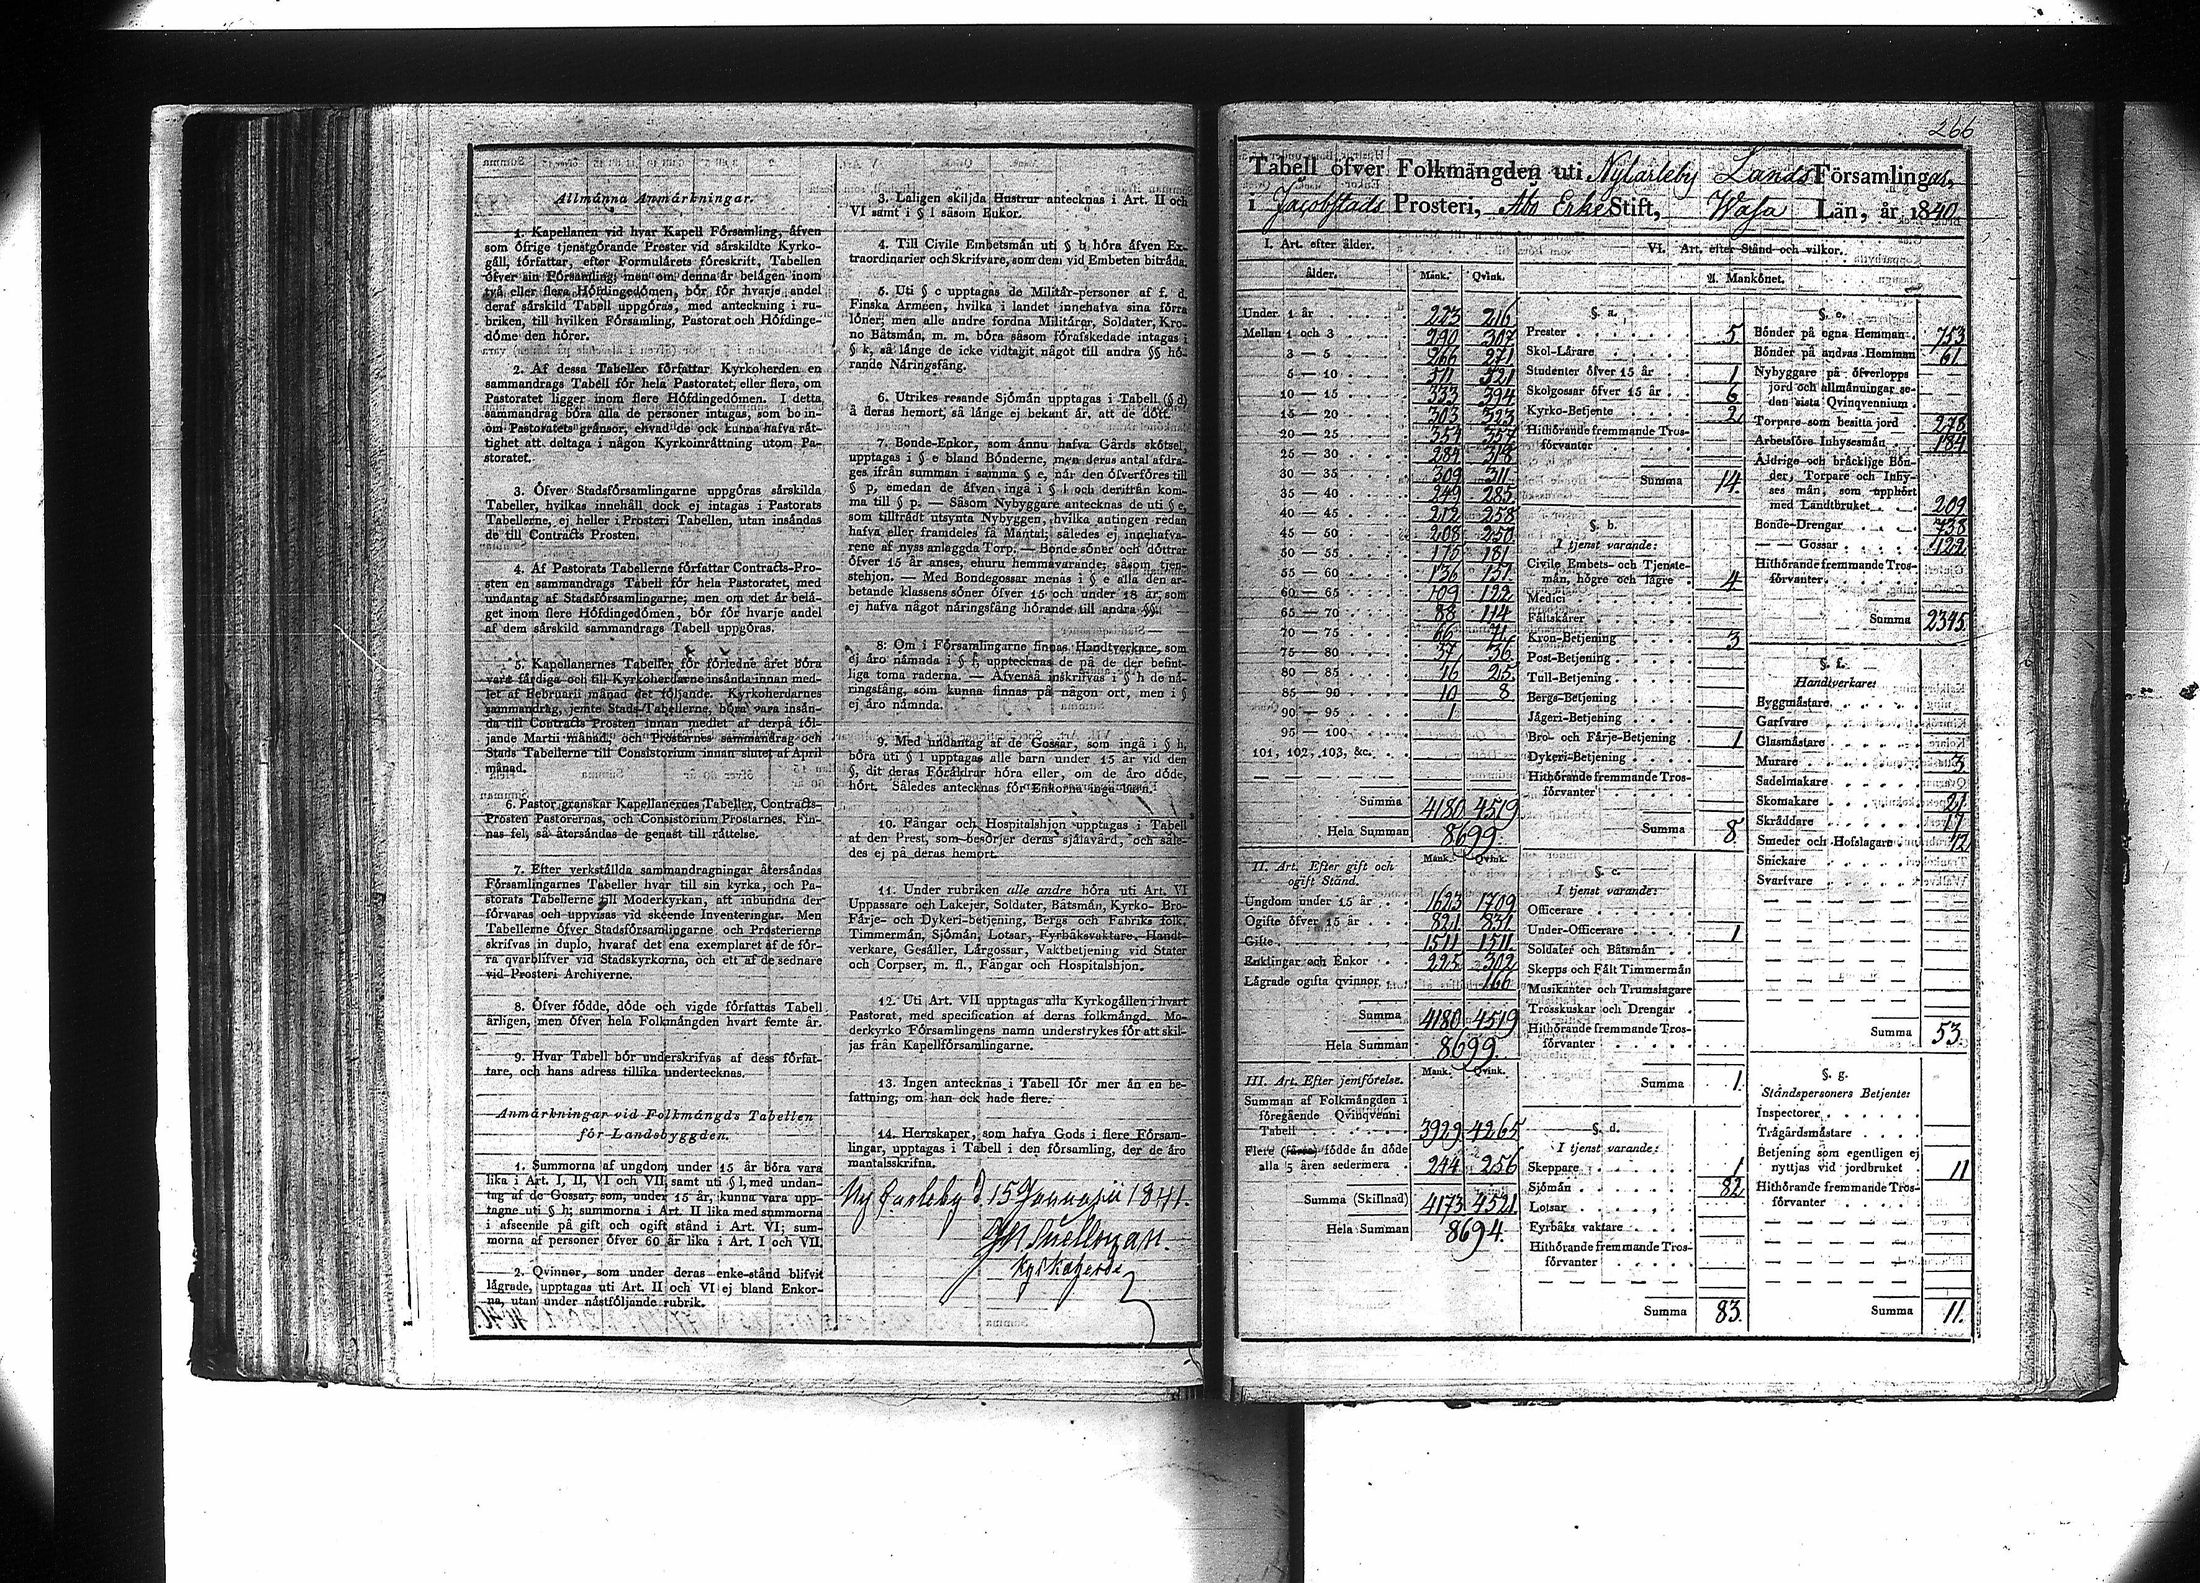 Allmänna Anmärkningar.
1. Kapellanen vid hvar Kapell Församling, äfven
som öfrige tjenstgörande Prester vid särskildte Kyrko-
gäll, författar, efter Formulärets föreskrift, Tabellen
öfver sin Församling; men om denna är belägen inom
två eller flera Höfdingedömen, bör för hvarje andel
deraf särskild Tabell uppgöras, med anteckning i ru-
briken, till hvilken Församling, Pastorat och Höfdinge-
döme den hörer.
2. Af dessa Tabeller författar Kyrkoherden en
sammandrags Tabell för hela Pastoratet; eller flera, om
Pastoratet ligger inom flere Höfdingedömen. I detta
sammandrag böra alla de personer intagas, som bo in-
om Pastoratets gränsor, ehvad de ock kunna hafva rät-
tighet att deltaga i någon Kyrkoinrättning utom Pa-
storatet.
3. Öfver Stadsförsamlingarne uppgöras särskilda
Tabeller, hvilkas innehåll dock ej intages i Pastorats
Tabellerne, ej heller i Prosteri Tabellen, utan insändas
de till Contracts Prosten.
4. Af Pastorats Tabellerne författar Contracts-Pro-
sten en sammandrags Tabell för hela Pastoratet, med
undantag af Stadsförsamlingarne; men om det är belä-
get inom flere Höfdingedömen, bör för hvarje andel
af dem särskild sammandrags Tabell uppgöras.
5. Kapellanernes Tabeller för förledne året böra
vara färdiga och till Kyrkoherdarne insända innan med-
let af Februarii månad det följande. Kyrkoherdarnes
sammandrag, jemte Stads-Tabellerne, böra vara insän-
da till Contracts Prosten innan medlet af derpå föl-
jande Martii månad; och Prostarnes sammandrag och
Stads Tabellerne till Consistorium innan slutet af April
månad.
6. Pastor granskar Kapellanernes Tabeller, Contracts-
Prosten Pastorernas, och Consistorium Prostarnes. Fin-
nas fel, så återsändas de genast till rättelse.
7. Efter verkställda sammandragningar återsändas
Församlingarnes Tabeller hvar till sin kyrka, och Pa-
storats Tabellerne till Moderkyrkan, att inbundna der
förvaras och uppvisas vid skeende Inventeringar. Men
Tabellerne öfver Stadsförsamlingarne och Prosterierne
skrifvas in duplo, hvaraf det ena exemplaret af de för-
ra qvarblifver vid Stadskyrkorna, och ett af de sednare
vid Prosteri Archiverne.
8. Öfver födde, döde och vigde författas Tabell
årligen, men öfver hela Folkmängden hvart femte år.
9. Hvar Tabell bör underskrifvas af dess förfat-
tare, och hans adress tillika undertecknas.
Anmärkningar vid Folkmängds Tabellen
för Landsbyggden.
1. Summorna af ungdom under 15 år böra vara
lika i Art. I, II, VI och VII samt uti § l, med undan-
tag af de Gossar, som, under 15 år, kunna vara upp-
tagne uti § h; summorna i Art. II lika med summorna
i afseende på gift och ogift stånd i Art. VI; sum-
morna af personer öfver 60 år lika i Art. I och VII.
2. Qvinnor, som under deras enke-stånd blifvit
lägrade, upptagas uti Art. II och VI ej bland Enkor-
na, utan under nästföljande rubrik.
3. Laligen skiljda Hustrur antecknas i Art. II och
VI samt i § l såsom Enkor.
4. Till Civile Embetsmän uti § b höra äfven Ex-
traordinarier och Skrifvare, som dem vid Embeten biträda.
5. Uti § c upptagas de Militär-personer af f. d.
Finska Arméen, hvilka i landet innehafva sina förra
löner; men alle andre fordna Militärer, Soldater, Kro-
no Båtsmän, m. m. böra såsom förafskedade intagas i
§ k, så länge de icke vidtagit något till andra §§ hö-
rande Näringsfång.
6. Utrikes resande Sjömän upptagas i Tabell (§ d)
å deras hemort, så länge ej bekant är, att de dött.
7. Bonde-Enkor, som ännu hafva Gårds skötsel,
upptagas i § e bland Bönderne, men deras antal afdra-
ges ifrån summan i samma § e, när den öfverföres till
§ p, emedan de äfven ingå i § l och derifrån kom-
ma till § p. — Såsom Nybyggare antecknas de uti § e,
som tillträdt utsynta Nybyggen, hvilka antingen redan
hafva eller framdeles få Mantal; således ej innehafva-
rene af nyss anlaggda Torp. — Bonde söner och döttrar
öfver 15 år anses, ehuru hemmavarande; såsom tjen-
stehjon. — Med Bondegossar menas i § e alla den ar-
betande klassens söner öfver 15 och under 18 år, som
ej hafva något näringsfång hörande till andra §§.
8. Om i Församlingarne finnas Handtverkare, som
ej äro nämnda i § f, upptecknas de på de der befint-
liga toma raderna. — Äfvenså inskrifvas i § h de nä-
ringsfång, som kunna finnas på någon ort, men i §
ej äro nämnda.
9. Med undantag af de Gossar, som ingå i § h,
böra uti § l upptagas alle barn under 15 år vid den
§, dit deras Föräldrar höra eller, om de äro döde,
hört. Således antecknas för Enkorna inga barn.
10. Fångar och Hospitalshjon upptagas i Tabell
af den Prest, som besörjer deras själavård, och såle-
des ej på deras hemort.
11. Under rubriken alle andre höra uti Art. VI
Uppassare och Lakejer, Soldater, Båtsmän, Kyrko- Bro-
Färje- och Dykeri-betjening, Bergs och Fabriks folk,
Timmermän, Sjömän, Lotsar, Fyrbåksvaktare, Handt-
verkare, Gesäller, Lärgossar, Vaktbetjening vid Stater
och Corpser, m. fl., Fångar och Hospitalshjon.
12. Uti Art. VII upptagas alla Kyrkogällen i hvart
Pastorat, med specification af deras folkmängd. Mo-
derkyrko Församlingens namn understrykes för att skil-
jas från Kapellförsamlingarne.
13. Ingen antecknas i Tabell för mer än en be-
fattning, om han ock hade flere.
14. Herrskaper, som hafva Gods i flere Försam-
lingar, upptagas i Tabell i den församling, der de äro
mantalsskrifna.
Ny Carleby d. 15 Januarii 1841.
Snellman.
Kyrkoherde
266
Tabell öfver Folkmängden uti Nykarleby Lands Församlingar
i Jacobstads Prosteri, Åbo Erke Stift, Wasa Län, år 1840.
I. Art. efter ålder.
ålder. Mank. Qvink.
Under 1 år 223 216
Mellan 1 och 3 290 307
3 — 5 266 271
5 — 10 511 521
10 — 15 333 394
15 — 20 303 323
20 — 25 354 357
25 — 30 284 318
30 — 35 309 311
35 — 40 249 285
40 — 45 212 258
45 — 50 208 250
50 — 55 175 181
55 — 60 136 151
60 — 65 109 122
65 — 70 88 114
70 — 75 66 71
75 — 80 37 36
80 — 85 16 25
85 — 90 10 8
90 — 95 1
95 — 100
101, 102, 103, &c.
Summa 4180 4519
Hela Summan 8699.
II. Art. Efter gift och
ogift Stånd.
Mank. Qvink.
Ungdom under 15 år 1623 1709
Ogifte öfver 15 år 821 831
Gifte 1511 1511
Enklingar och Enkor 225 302
Lägrade ogifta qvinnor 166
Summa 4180 4519
Hela Summan 8699.
III. Art. Efter jemförelse.
Mank. Qvink.
Summan af Folkmängden i
föregående Qvinqvenni
Tabell 3929 4265
Flere (färre) födde än döde
alla 5 åren sedermera 244 256
Summa (Skillnad) 4173 4521
Hela Summan 8694.
VI. Art. efter Stånd och vilkor.
A. Mankönet.
§. a.
Prester 5
Skol-Lärare
Studenter öfver 15 år 1
Skolgossar öfver 15 år 6
Kyrko-Betjente 2
Hithörande fremmande Tros-
förvanter
Summa 14.
§. b.
I tjenst varande:
Civile Embets- och Tjenste-
män, högre och lägre 4
Medici
Fältskärer
Kron-Betjening 3
Post-Betjening
Tull-Betjening
Bergs-Betjening
Jägeri-Betjening
Bro- och Färje-Betjening 1
Dykeri-Betjening
Hithörande fremmande Tros-
förvanter
Summa 8.
§. c.
I tjenst varande:
Officerare
Under-Officerare 1
Soldater och Båtsmän
Skepps och Fält Timmermän
Musikanter och Trumslagare
Trosskuskar och Drengar
Hithörande fremmande Tros-
förvanter
Summa 1.
§. d.
I tjenst varande:
Skeppare 1
Sjömän 82
Lotsar
Fyrbåks vaktare
Hithörande fremmande Tros-
förvanter
Summa 83.
§. e.
Bönder på egna Hemman 753
Bönder på andras Hemman 61
Nybyggare på öfverlopps
jord och allmänningar se-
dan sista Qvinqvennium
Torpare som besitta jord 278
Arbetsföre Inhysesmän 184
Åldrige och bräcklige Bön-
der, Torpare och Inhy-
ses män, som upphört
med Landtbruket 209
Bonde-Drengar 738
— — Gossar 122
Hithörande fremmande Tros-
förvanter
Summa 2345
§. f.
Handtverkare:
Byggmästare
Garfvare
Glasmästare
Murare 3
Sadelmakare
Skomakare 21
Skräddare 17
Smeder och Hofslagare 12
Snickare
Svarfvare
Summa 53.
§. g.
Ståndspersoners Betjente:
Inspectorer
Trägårdsmästare
Betjening som egentligen ej
nyttjas vid jordbruket 11
Hithörande fremmande Tros-
förvanter
Summa 11.